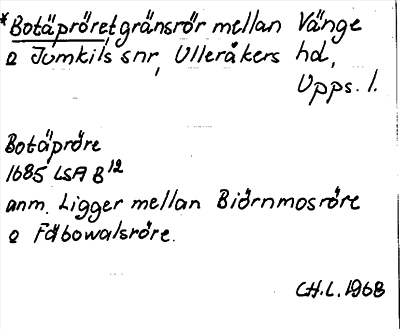 *Botäpröret gränsrör mellan Vänge
o Jumkils snr, Ulleråkers hd,
Upps. l.
Botäpröre
1685 LSA B12
anm. Ligger mellan Biörnmosröre
o Fäbowalsröre.
CH.L. 1968